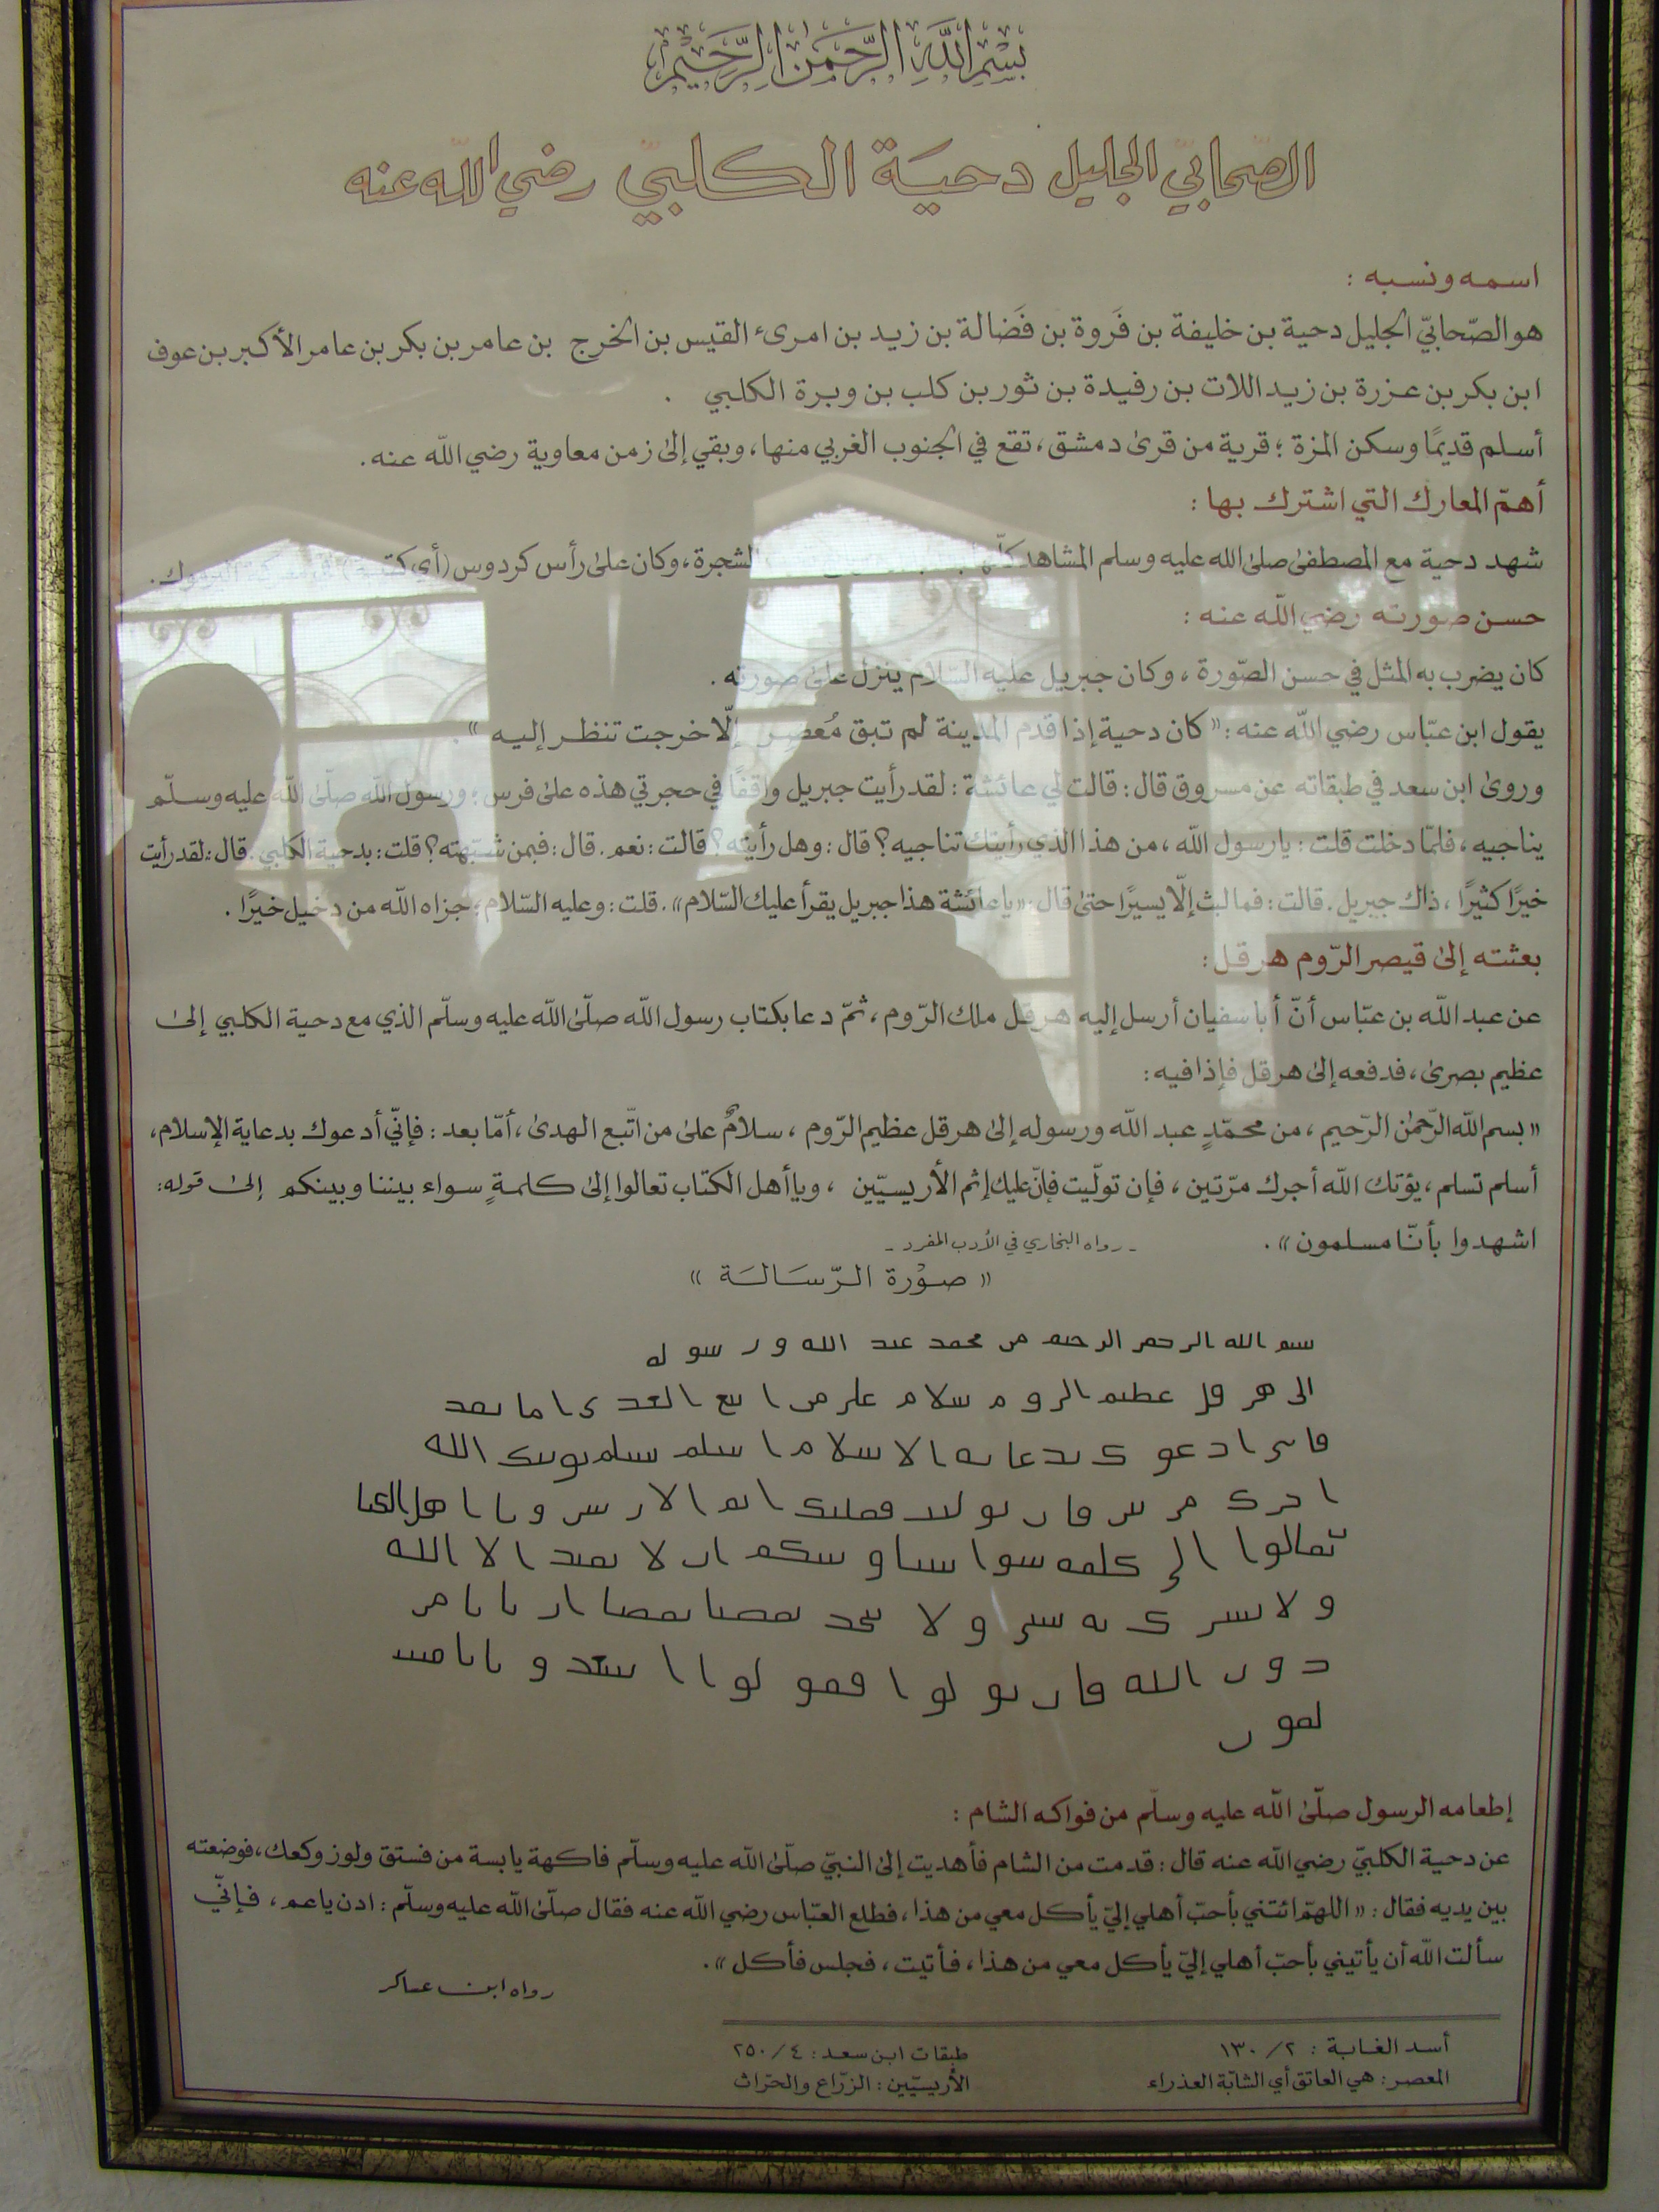 بِسْمِ اللَّهِ الرَّحْمَنِ الرَّحِيمِ
الصّحابيّ الجليل دحيَة الكلبيّ رضي اللّه عنه
اسمه ونسبه :
هو الصّحابيّ الجليل دحية بن خليفة بن فَروة بن فَضالة بن زيد بن امرىء القيس بن الخرج بن عامر بن بكر بن عامر الأكبر بن عوف
ابن بكر بن عزرة بن زيد اللات بن رفيدة بن ثور بن كلب بن وبرة الكلبي .
أسلم قديمًا وسكن المزة ؛ قرية من قرى دمشق ، تقع في الجنوب الغربي منها ، وبقي إلى زمن معاوية رضي اللّه عنه .
أهمّ المعارك التي اشترك بها :
شهد دحية مع المصطفى صلى الله عليه وسلم المشاهد كلّها الشجرة ، وكان على رأس كردوس (أي كتيبة) في معركة اليرموك .
حسن صورته رضي اللّه عنه :
كان يضرب به المثل في حسن الصّورة ، وكان جبريل عليه السّلام ينزل على صورته .
يقول ابن عبّاس رضي اللّه عنه : « كان دحية إذا قدم المدينة لم تبق مُعصر إلّا خرجت تنظر إليه » .
وروى ابن سعد في طبقاته عن مسروق قال : قالت لي عائشة : لقد رأيت جبريل واقفًا في حجرتي هذه على فرس ؛ ورسول اللّه صلّى اللّه عليه وسلّم
يناجيه ، فلمّا دخلت قلت : يا رسول اللّه ، من هذا الذي رأيتك تناجيه ؟ قال : وهل رأيته ؟ قالت : نعم . قال : فبمن شبّهته ؟ قلت : بدحية الكلبي . قال : لقد رأيت
خيرًا كثيرًا ، ذاك جبريل . قالت : فما لبث إلّا يسيرًا حتى قال : « يا عائشة هذا جبريل يقرأ عليك السّلام » . قلت : وعليه السّلام ، جزاه اللّه من دخيل خيرًا .
بعثته إلى قيصر الرّوم هرقل :
عن عبد اللّه بن عبّاس أنّ أبا سفيان أرسل إليه هرقل ملك الرّوم ، ثمّ دعا بكتاب رسول اللّه صلّى اللّه عليه وسلّم الذي مع دحية الكلبي إلى
عظيم بصرى ، فدفعه إلى هرقل فإذا فيه :
« بسم اللّه الرّحمٰن الرّحيم ، من محمّدٍ عبد اللّه ورسوله إلى هرقل عظيم الرّوم ، سلامٌ على من اتّبع الهدى ، أمّا بعد : فإنّي أدعوك بدعاية الإسلام ،
أسلم تسلم ، يؤتك اللّه أجرك مرّتين ، فإن تولّيت فإنّ عليك إثم الأريسيّين ، ويا أهل الكتاب تعالوا إلى كلمةٍ سواء بيننا وبينكم إلى قوله :
اشهدوا بأنّا مسلمون » . - رواه البخاري في الأدب المفرد -
« صوْرة الرّسَالَسَة »
سم الله الرحمر الرحىم مں محمد عىد الله ور سو له
الى هر ڡل عطىم الرو م سلام على مں اىع الهدى اما ىعد
ڡاىى ادعو ك ىدعاىه الاسلام اسلم ىسلم ىوىىك الله
احرك مرىىں ڡاں ىولىىٮ ڡعلىك اىم الارىسىں و ىا اهل الكىا
تعالوا الى كلمه سوا ىىىىا و ىىىكم اں لا ىعىد الا الله
و لا ىسرك ىه سىا و لا ىىحد ىعصىا ىعصا ارىاىا مں
دوں الله ڡاں ىولوا ڡڡولوا اسهدو ىاىا مسـ
لموں
إطعامه الرسول صلّى اللّه عليه وسلّم من فواكه الشام :
عن دحية الكلبيّ رضي اللّه عنه قال : قدمت من الشام فأهديت إلى النبيّ صلّى اللّه عليه وسلّم فاكهة يابسة من فستق ولوز وكعك ، فوضعته
بين يديه فقال : « اللهمّ ائتني بأحبّ أهلي إليّ يأكل معي من هذا ، فطلع العبّاس رضي اللّه عنه فقال صلّى اللّه عليه وسلّم : ادن يا عم ، فإنّي
سألت اللّه أن يأتيني بأحبّ أهلي إليّ يأكل معي من هذا ، فأتيت ، فجلس فأكل » .
رواه ابن عساكر
أسد الغابة : ٢ / ١٣٠ طبقات ابن سعد : ٤ / ٢٥٠
المعصر : هي العاتق أي الشابّة العذراء الأريسيّين : الزرّاع والحرّاث